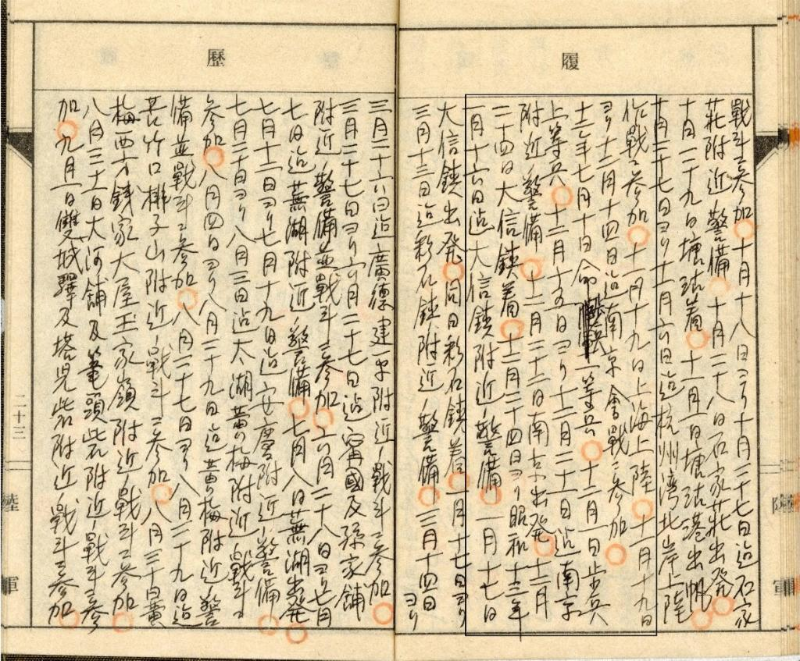 履
戰斗ニ参加。十月十八日ヨリ十月二十七日迄石家
荘附近ノ警備。十月二十八日石家荘出発。
十月二十九日塘沽着。十一月一日塘沽港出帆。
十月二十七日ヨリ十一月六日迄杭州湾北岸上陸
作戰ニ参加。十一月十九日上海上陸。十一月十九日
ヨリ十二月十四日迄南京会戰ニ参加。
十二年七月十日命一等兵。十二月一日歩兵
上等兵。十二月十五日ヨリ十二月二十日迄南京
附近ノ警備。十二月二十二日南京出発。十二月
二十四日大信鎮着。十二月二十四日ヨリ昭和十三年
一月十六日迄大信鎮附近ノ警備。一月十七日
大信鎮出発。同日彩石鎮着。一月十七日ヨリ
三月十三日迄彩石鎮附近ノ警備。三月十四日ヨリ
陸軍
歷
三月二十六日迄廣德建平附近ノ戰斗ニ参加。
三月二十七日ヨリ六月二十七日迄寗國及孫家舗
附近ノ警備並戰斗ニ参加。六月二十八日ヨリ七月
七日迄蕪湖附近ノ警備。七月八日蕪湖出発。
七月十二日ヨリ七月十九日迄安慶附近ノ警備。
七月二十日ヨリ八月三日迄太湖黄梅附近ノ戰斗ニ
参加。八月四日ヨリ八月二十九日迄黄梅附近ノ警
備並戰斗ニ参加。八月二十七日ヨリ八月二十九日迄
苦竹口排子山附近ノ戰斗ニ参加。八月三十日黄
梅西方錢家大屋王家嶺附近ノ戰斗ニ参加。
八月三十一日大河舗及筆頭砦附近ノ戰斗ニ参
加。九月一日雙城驛及塔児砦附近ノ戰斗ニ参加。
二十三
陸軍